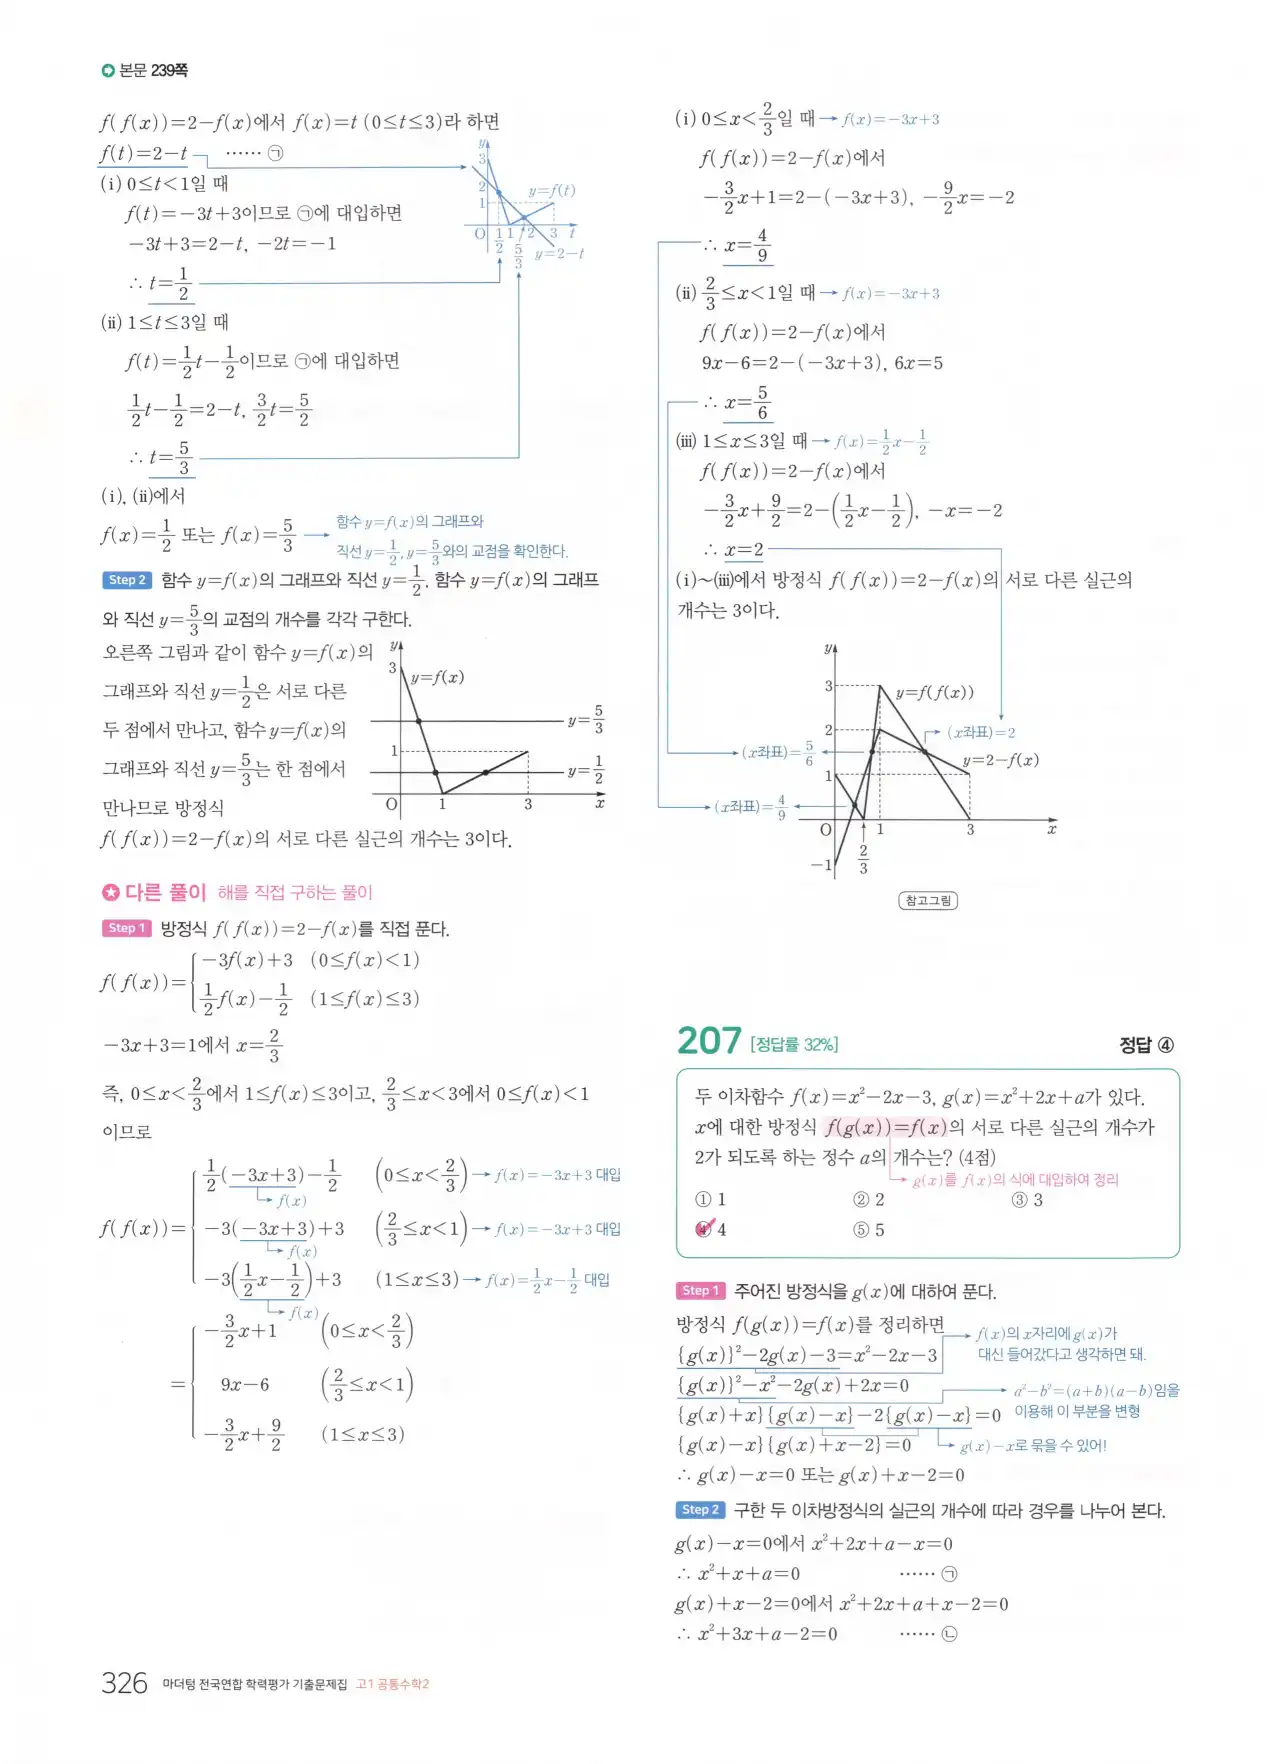 본문 239쪽
f(f(x))=2-f(x)에서 f(x)=t (0≤t≤3)라 하면
f(t)=2-t ······ ㉠
(ⅰ) 0≤t<1일 때
f(t)=-3t+3이므로 ㉠에 대입하면
-3t+3=2-t, -2t=-1
∴ t=1/2
(ⅱ) 1≤t≤3일 때
f(t)=1/2t-1/2이므로 ㉠에 대입하면
1/2t-1/2=2-t, 3/2t=5/2
∴ t=5/3
y
3
2
1
O 1/2 1 5/3 2 3 t
y=f(t)
y=2-t
(ⅰ), (ⅱ)에서
f(x)=1/2 또는 f(x)=5/3 → 함수 y=f(x)의 그래프와
직선 y=1/2, y=5/3와의 교점을 확인한다.
Step 2 함수 y=f(x)의 그래프와 직선 y=1/2, 함수 y=f(x)의 그래프
와 직선 y=5/3의 교점의 개수를 각각 구한다.
오른쪽 그림과 같이 함수 y=f(x)의
그래프와 직선 y=1/2은 서로 다른
두 점에서 만나고, 함수 y=f(x)의
그래프와 직선 y=5/3는 한 점에서
만나므로 방정식
f(f(x))=2-f(x)의 서로 다른 실근의 개수는 3이다.
y
3
y=f(x)
y=5/3
1
y=1/2
O 1 3 x
다른 풀이 해를 직접 구하는 풀이
Step 1 방정식 f(f(x))=2-f(x)를 직접 푼다.
f(f(x))={ -3f(x)+3 (0≤f(x)<1)
1/2f(x)-1/2 (1≤f(x)≤3)
-3x+3=1에서 x=2/3
즉, 0≤x<2/3에서 1≤f(x)≤3이고, 2/3≤x<3에서 0≤f(x)<1
이므로
f(f(x))={ 1/2(-3x+3)-1/2 (0≤x<2/3) → f(x)=-3x+3 대입
f(x)
-3(-3x+3)+3 (2/3≤x<1) → f(x)=-3x+3 대입
f(x)
-3(1/2x-1/2)+3 (1≤x≤3) → f(x)=1/2x-1/2 대입
f(x)
={ -3/2x+1 (0≤x<2/3)
9x-6 (2/3≤x<1)
-3/2x+9/2 (1≤x≤3)
(ⅰ) 0≤x<2/3일 때 → f(x)=-3x+3
f(f(x))=2-f(x)에서
-3/2x+1=2-(-3x+3), -9/2x=-2
∴ x=4/9
(ⅱ) 2/3≤x<1일 때 → f(x)=-3x+3
f(f(x))=2-f(x)에서
9x-6=2-(-3x+3), 6x=5
∴ x=5/6
(ⅲ) 1≤x≤3일 때 → f(x)=1/2x-1/2
f(f(x))=2-f(x)에서
-3/2x+9/2=2-(1/2x-1/2), -x=-2
∴ x=2
(ⅰ)~(ⅲ)에서 방정식 f(f(x))=2-f(x)의 서로 다른 실근의
개수는 3이다.
y
3
y=f(f(x))
2
(x좌표)=2
(x좌표)=5/6
y=2-f(x)
1
(x좌표)=4/9
O 2/3 1 3 x
-1
참고그림
207 [정답률 32%] 정답 ④
두 이차함수 f(x)=x²-2x-3, g(x)=x²+2x+a가 있다.
x에 대한 방정식 f(g(x))=f(x)의 서로 다른 실근의 개수가
2가 되도록 하는 정수 a의 개수는? (4점)
g(x)를 f(x)의 식에 대입하여 정리
① 1 ② 2 ③ 3
④ 4 ⑤ 5
Step 1 주어진 방정식을 g(x)에 대하여 푼다.
방정식 f(g(x))=f(x)를 정리하면
{g(x)}²-2g(x)-3=x²-2x-3
f(x)의 x자리에 g(x)가
대신 들어갔다고 생각하면 돼.
{g(x)}²-x²-2g(x)+2x=0
a²-b²=(a+b)(a-b)임을
이용해 이 부분을 변형
{g(x)+x}{g(x)-x}-2{g(x)-x}=0
{g(x)-x}{g(x)+x-2}=0
g(x)-x로 묶을 수 있어!
∴ g(x)-x=0 또는 g(x)+x-2=0
Step 2 구한 두 이차방정식의 실근의 개수에 따라 경우를 나누어 본다.
g(x)-x=0에서 x²+2x+a-x=0
∴ x²+x+a=0 ······ ㉠
g(x)+x-2=0에서 x²+2x+a+x-2=0
∴ x²+3x+a-2=0 ······ ㉡
326 마더텅 전국연합 학력평가 기출문제집 고1 공통수학2